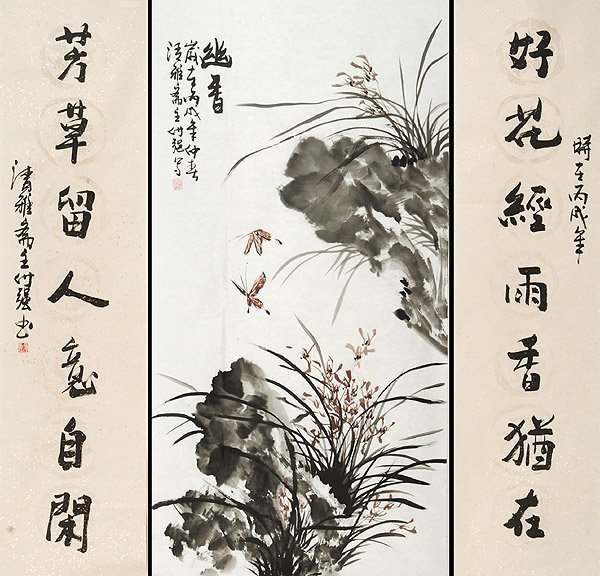 好花經雨香猶在
時在丙戌年
幽香
歲在丙戌年仲春
清雅斋主
芳草留人意自閑
清雅斋主